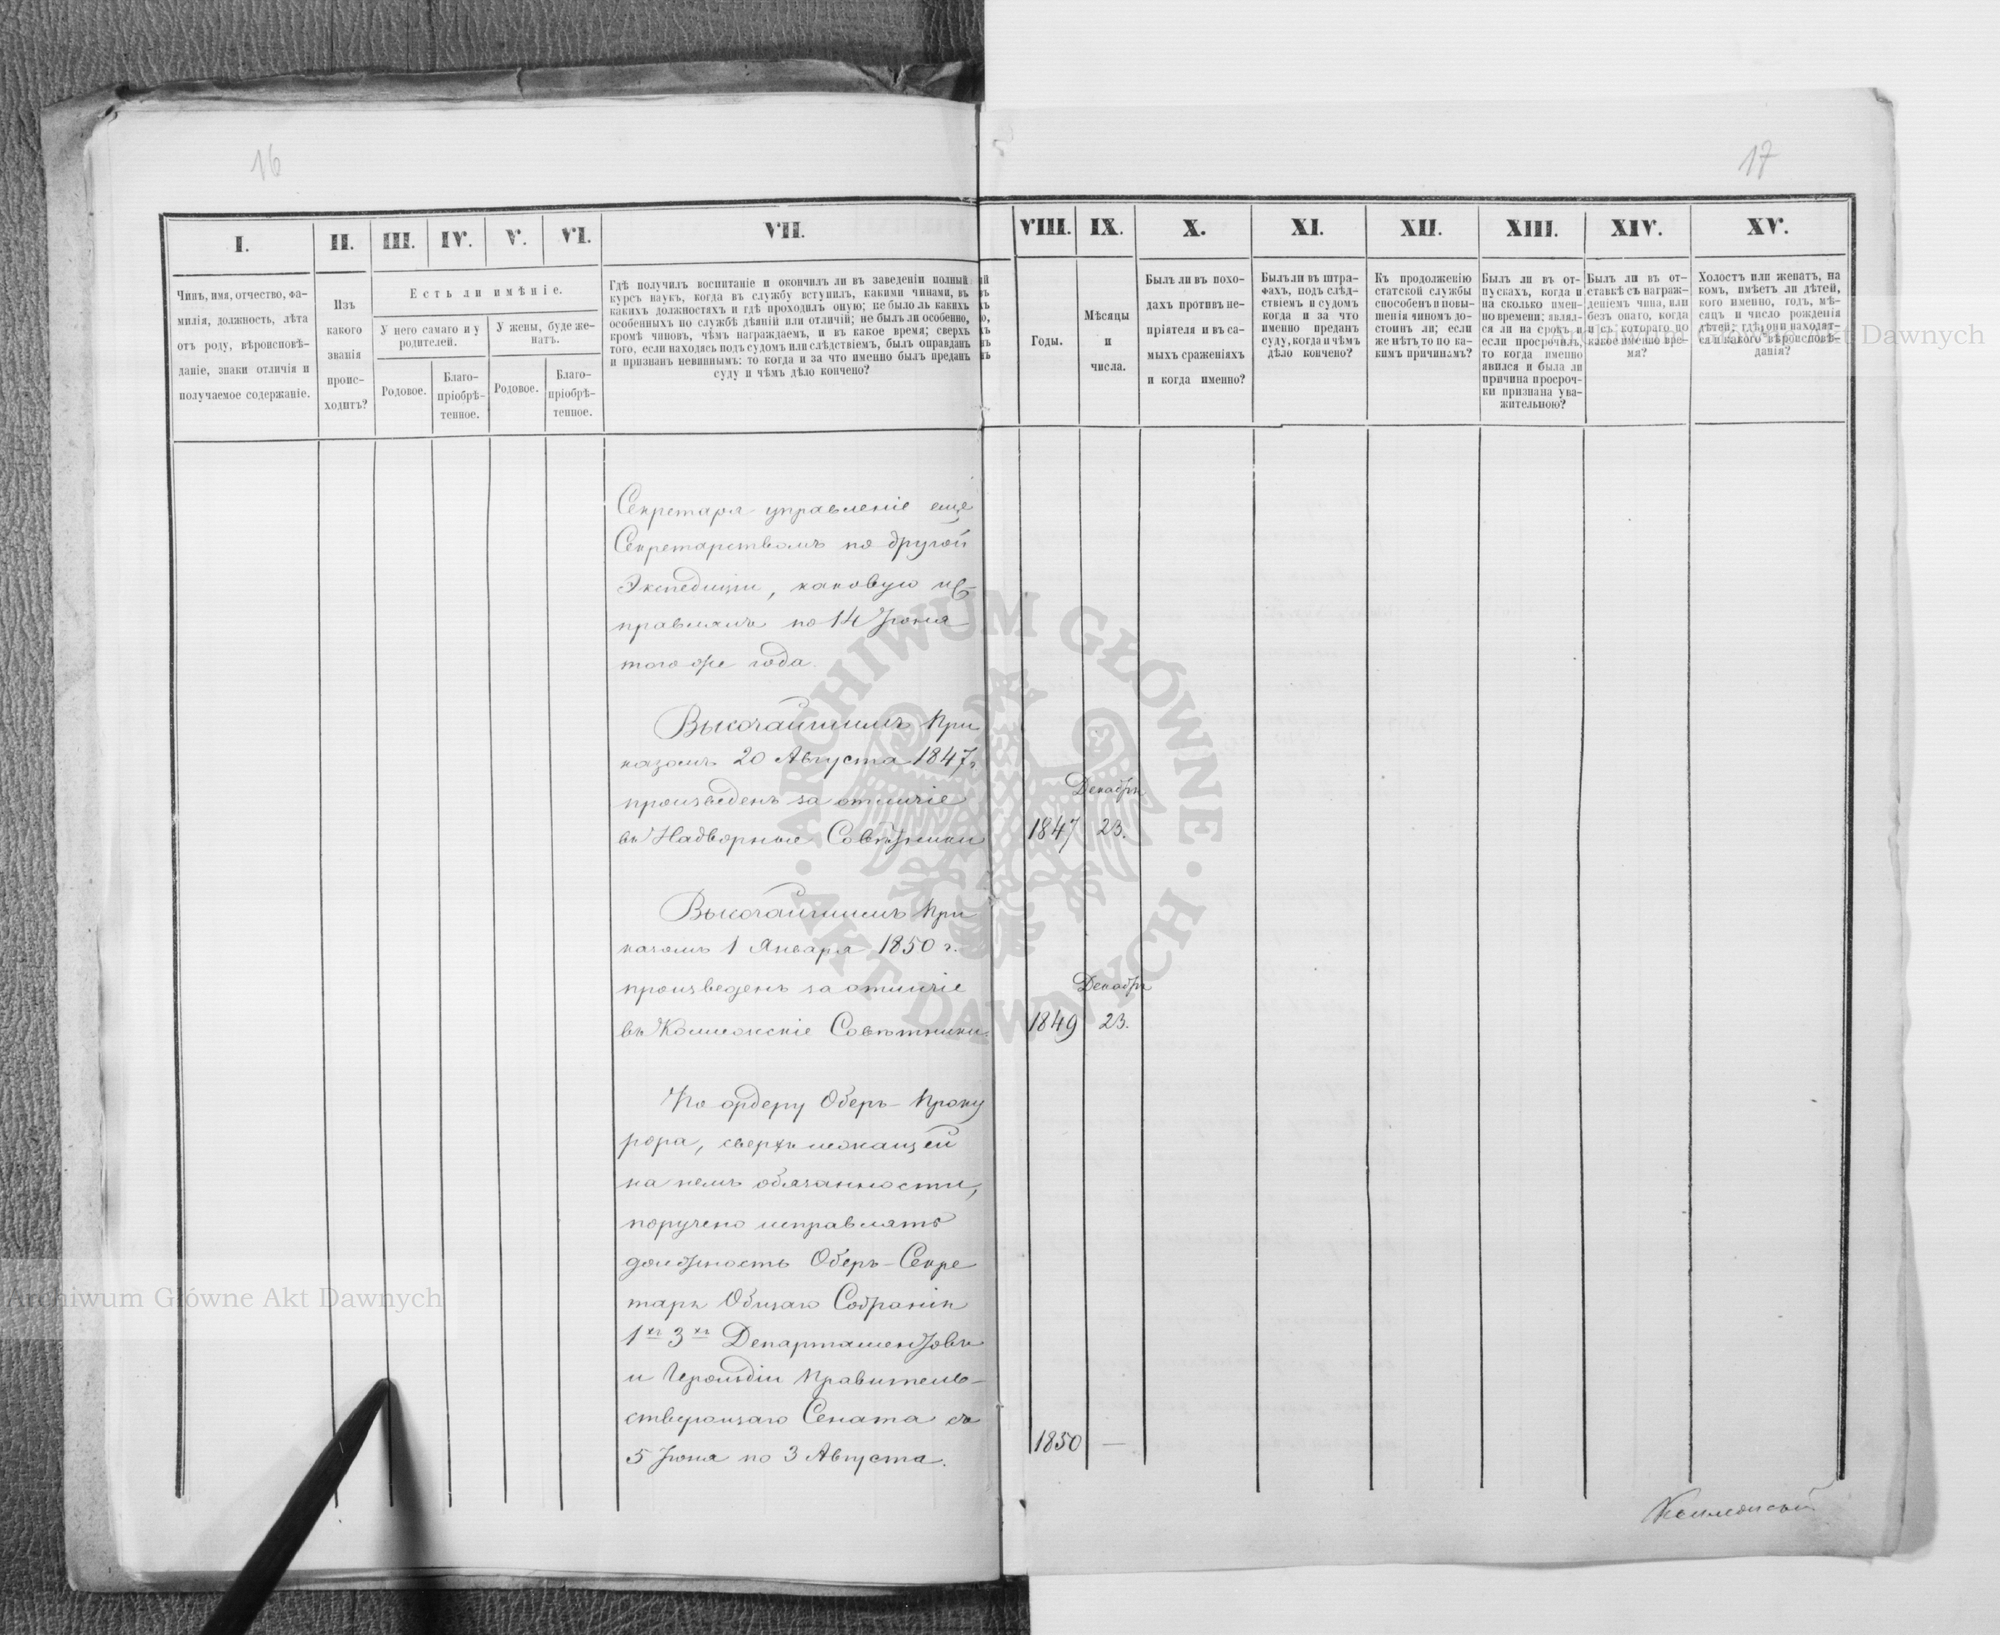 16
17
I.
II.
III.
IV.
V.
VI.
VII.
VIII.
IX.
X.
XI.
XII.
XIII.
XIV.
XV.
Чинъ, имя, отчество, фа-
милія, должность, лѣта
отъ роду, вѣроисповѣ-
даніе, знаки отличія и
получаемое содержаніе.
Изъ
какого
званія
проис-
ходитъ?
Есть ли имѣніе.
У него самаго и у
родителей.
У жены, буде же-
натъ.
Родовое.
Благо-
пріобрѣ-
тенное.
Родовое.
Благо-
пріобрѣ-
тенное.
Гдѣ получилъ воспитаніе и окончилъ ли въ заведеніи полный
курсъ наукъ, когда въ службу вступилъ, какими чинами, въ
какихъ должностяхъ и гдѣ проходилъ оную; не было ль какихъ
особенныхъ по службѣ дѣяній или отличій; не былъ ли особенно,
кромѣ чиновъ, чѣмъ награждаемъ, и въ какое время; сверхъ
того, если находясь подъ судомъ или слѣдствіемъ, былъ оправданъ
и признанъ невиннымъ: то когда и за что именно былъ преданъ
суду и чѣмъ дѣло кончено?
Годы.
Мѣсяцы
и
числа.
Былъ ли въ похо-
дахъ противъ не-
пріятеля и въ са-
мыхъ сраженіяхъ
и когда именно?
Былъ ли въ штра-
фахъ, подъ слѣд-
ствіемъ и судомъ
когда и за что
именно преданъ
суду, когда и чѣмъ
дѣло кончено?
Къ продолженію
статской службы
способенъ и повы-
шенія чиномъ до-
стоинъ ли; если
же нѣтъ то по ка-
кимъ причинамъ?
Былъ ли въ от-
пускахъ, когда и
на сколько имен-
но времени; являл-
ся ли на срокъ, и
если просрочилъ,
то когда именно
явился и была ли
причина просроч-
ки признана ува-
жительною?
Былъ ли въ от-
ставкѣ съ награж-
деніемъ чина, или
безъ онаго, когда
и съ котораго по
какое именно вре-
мя?
Холостъ или женатъ, на
комъ, имѣетъ ли дѣтей,
кого именно, годъ, мѣ-
сяцъ и число рожденія
дѣтей; гдѣ они находят-
ся и какого вѣроисповѣ-
данія?
Секретаря управленіе еще
Секретарствомъ по другой
Экспедиціи, каковую ис-
правлялъ по 14 Іюня
того же года.
Высочайшимъ при
казомъ 20 Августа 1847 г.
произведенъ за отличіе
въ Надворные Совѣтники
1847
Декабря
23.
Высочайшимъ при
казомъ 1 Января 1850 г.
произведенъ за отличіе
въ Коллежскіе Совѣтники
1849
Декабря
23.
По ордеру Оберъ-Проку
рора, сверхъ лежащей
на немъ обязанности,
поручено исправлять
должность Оберъ-Секре
таря Общаго Собранія
1хъ 3хъ Департаментовъ
и Герольдіи Правитель-
ствующаго Сената съ
5 Іюня по 3 Августа.
1850
—
ARCHIWUM GŁÓWNE AKT DAWNYCH
Archiwum Główne Akt Dawnych
Archiwum Główne Akt Dawnych